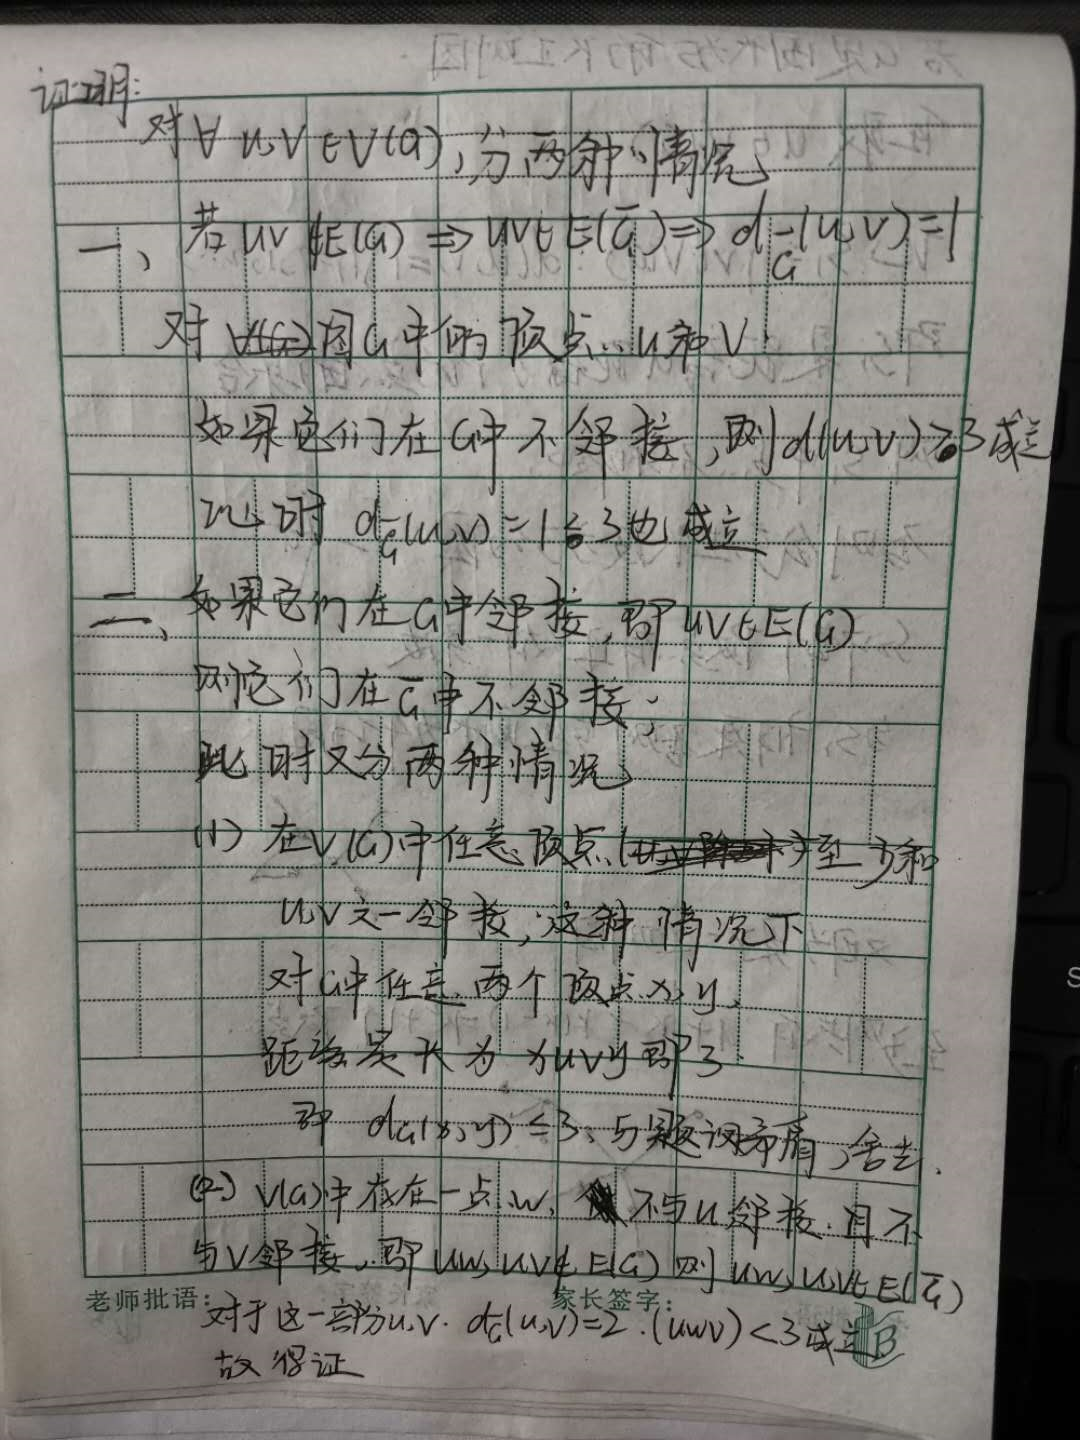 证明:
对∀ u,v∈V(G),分两种情况
一、若uv∉E(G) ⇒ uv∈E(Ḡ) ⇒ d_Ḡ(u,v)=1
对图G中的顶点u和v.
如果它们在G中不邻接,则d(u,v)≥3成立
此时 d_Ḡ(u,v)=1≤3也成立
二、如果它们在G中邻接,即uv∈E(G)
则它们在Ḡ中不邻接;
此时又分两种情况
(1) 在V(G)中任意顶点至少和
u,v之一邻接,这种情况下
对G中任意两个顶点x,y,
距离最长为 xuvy即3
即 d_G(x,y)≤3,与题设矛盾,舍去.
(2) V(G)中存在一点w,不与u邻接.且不
与v邻接,即uw,uv∉E(G)则uw,uv∈E(Ḡ)
老师批语: 家长签字:
对于这一部分u,v. d_Ḡ(u,v)=2.(uwv)<3成立
故得证